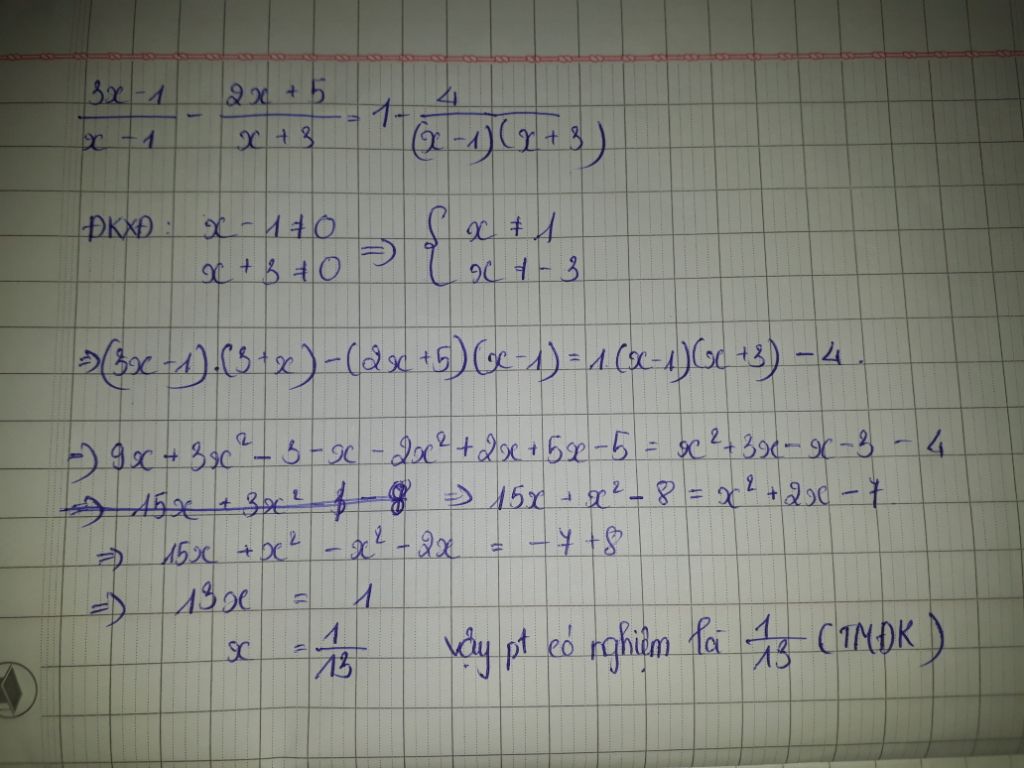 3x-1/x-1 - 2x+5/x+3 = 1 - 4/(x-1)(x+3)
ĐKXĐ: x-1≠0 => { x≠1
x+3≠0 x≠-3
=> (3x-1).(3+x)-(2x+5)(x-1)=1(x-1)(x+3)-4.
=> 9x+3x²-3-x-2x²+2x+5x-5=x²+3x-x-3-4
=> 15x+3x² - 8 => 15x+x²-8=x²+2x-7
=> 15x+x²-x²-2x = -7+8
=> 13x = 1
x = 1/13 Vậy pt có nghiệm là 1/13 (TMĐK)